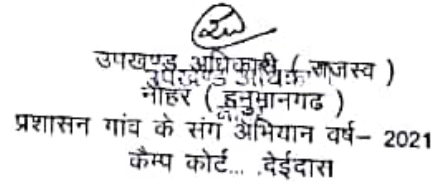 उपखण्ड अधिकारी ( राजस्व )
नोहर ( हनुमानगढ )
प्रशासन गांव के संग अभियान वर्ष– 2021
कैम्प कोर्ट... .देईदास